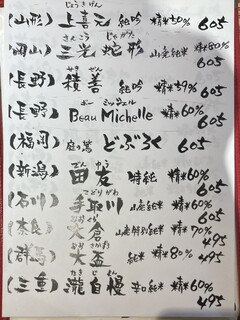 じょうきげん
(山形) 上喜元 純吟 精米50% 605
さんこう じゃがた
(岡山) 三光 蛇形 山廃純米 精米80% 605
せきぜん
(長野) 積善 純吟 精米59% 605
ボー ミッシェル
(長野) Beau Michelle 精米60% 605
(福岡) 庭の鶯 どぶろく 605
でんゆう
(新潟) 田友 特純 精米60% 605
てどりがわ
(石川) 手取川 山廃純米 精米60% 605
おおくら
(奈良) 大倉 山廃特別純米 精米70% 495
おおさかずき
(群馬) 大盃 純米 精米80% 495
たきじまん
(三重) 瀧自慢 辛口純米 精米60% 495